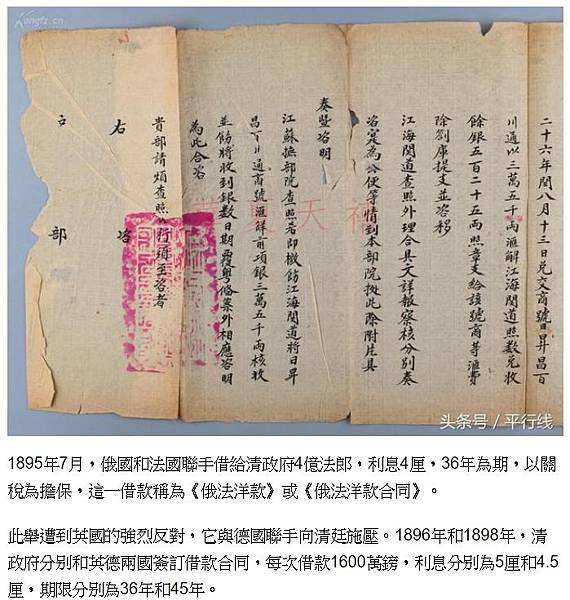 二十六年閏八月十三日兌交商號日昇昌百
川通以三萬五千兩滙解江海関道照數兌收
餘銀五百二十五兩照章支給該號商等滙費
除劄庫提支並咨移
江海関道查照外理合具文詳報察核分別奏
咨寔為公便等情到本部院據此除附片具
奏暨咨明
江蘇撫部院查照希即檄飭江海関道將日昇
昌百川通商號滙解前項銀三萬五千兩核收
並飭將收到銀數日期覆粵備案外相應咨明
為此合咨
貴部請煩查照施行須至咨者
右 咨
戶 部
kongfz.cn
头条号 / 平行线
1895年7月，俄國和法國聯手借給清政府4億法郎，利息4厘，36年為期，以關
稅為擔保，這一借款稱為《俄法洋款》或《俄法洋款合同》。
此舉遭到英國的強烈反對，它與德國聯手向清廷施壓。1896年和1898年，清
政府分別和英德兩國簽訂借款合同，每次借款1600萬鎊，利息分別為5厘和4.5
厘，期限分別為36年和45年。